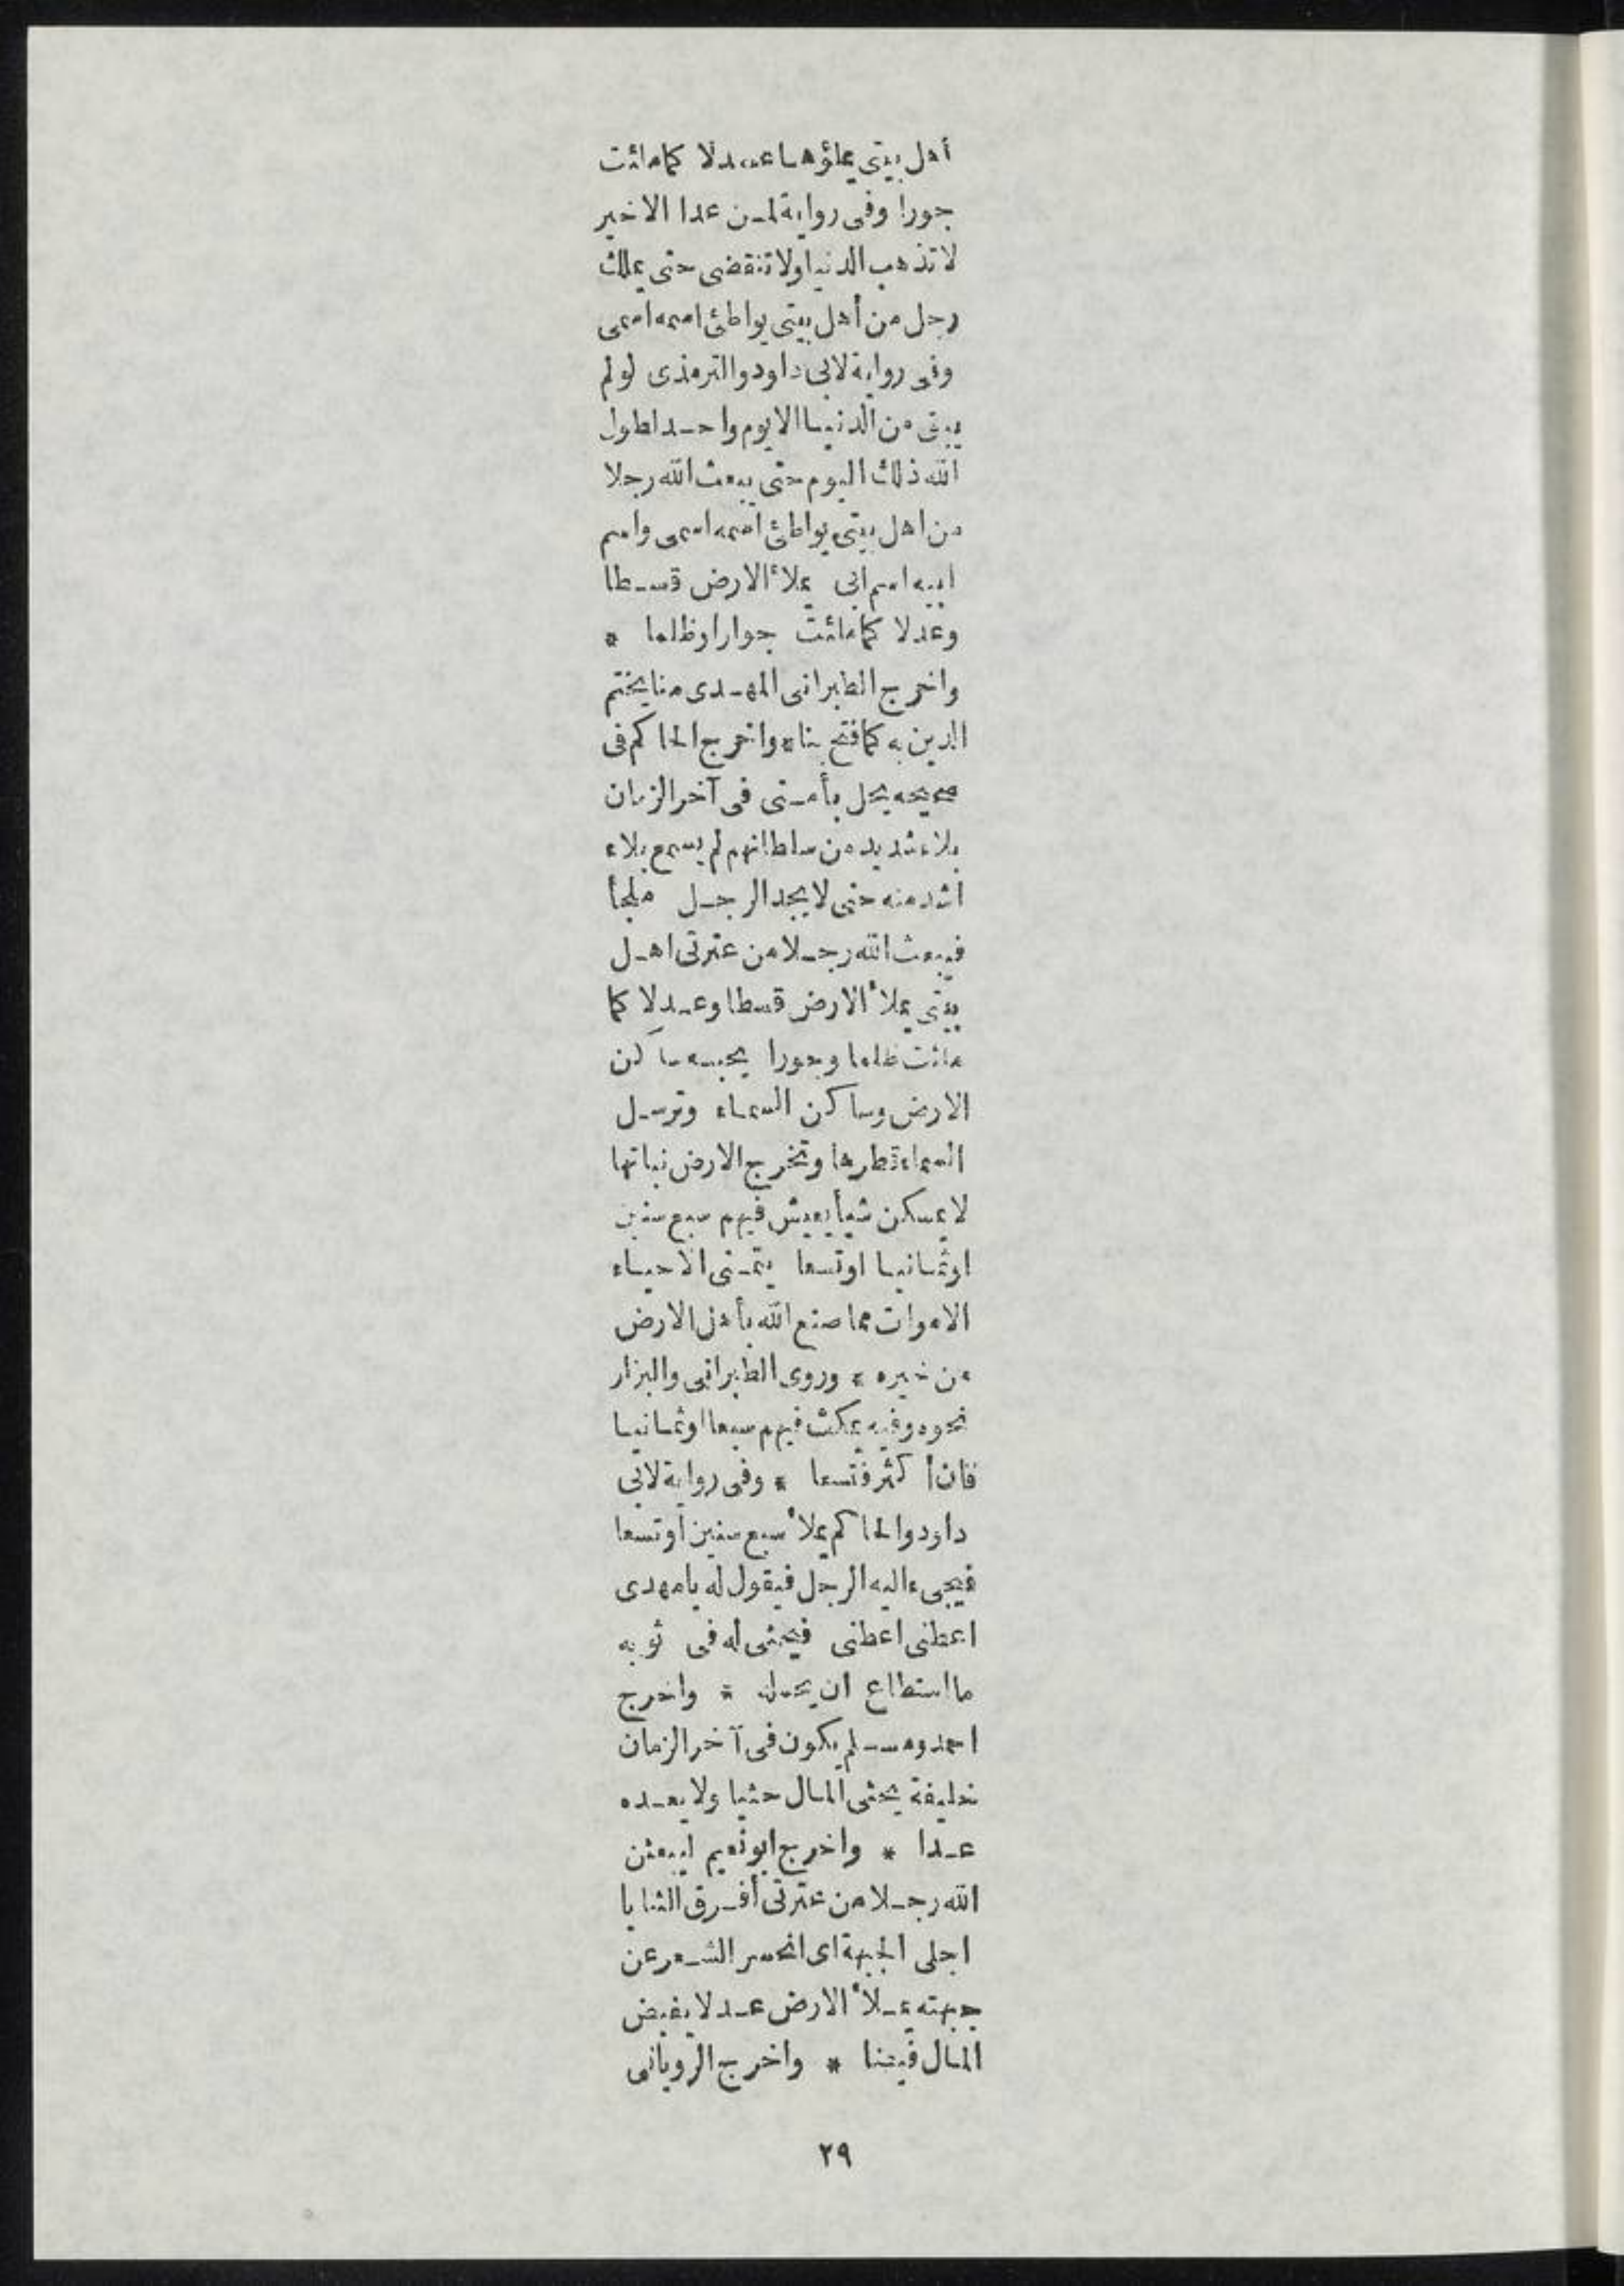 أهل بيتى يملؤها عدلا كماملئت
جورا وفى رواية لمن عدا الاخير
لا تذهب الدنيا ولا تنقضى حتى يملك
رجل من أهل بيتى يواطئ اسمه اسمى
وفى رواية لابى داود والترمذى لولم
يبقى من الدنيا الا يوم واحد لطول
الله ذلك اليوم حتى يبعث الله رجلا
من اهل بيتى يواطئ اسمه اسمى واسم
ابيه اسم ابى يملأ الارض قسطا
وعدلا كماملئت جوارا وظلما *
واخرج الطبرانى المهدى منا يختم
الدين به كما فتح بنا * واخرج الحاكم فى
صحيحه يحل بأمتى فى آخر الزمان
بلاء شديد من سلطانهم لم يسمع بلاء
اشد منه حتى لا يجد الرجل ملجأ
فيبعث الله رجلا من عترتى اهل
بيتى يملأ الارض قسطا وعدلا كما
ملئت ظلما وجورا يحبه ساكن
الارض وساكن السماء وترسل
السماء قطرها وتخرج الارض نباتها
لا يمسكن شيأ يعيش فيهم سبع سنين
اوثمانيا اوتسعا يتمنى الاحياء
الاموات مما صنع الله بأهل الارض
من خيره * وروى الطبرانى والبزار
نحوه وفيه يمكث فيهم سبعا اوثمانيا
فان أكثر فتسعا * وفى رواية لابى
داود والحاكم يملأ سبع سنين أوتسعا
فيجىء اليه الرجل فيقول له يا مهدى
اعطنى اعطنى فيحثى له فى ثوبه
ما استطاع ان يحمله * واخرج
احمد ومسلم يكون فى آخر الزمان
خليفة يحثى المال حثيا ولا يعده
عدا * واخرج ابو نعيم ليبعثن
الله رجلا من عترتى أفرق الثنايا
اجلى الجبهة اى انحسر الشعر عن
جبهته يملأ الارض عدلا يفيض
المال فيضا * واخرج الرويانى
٢٩